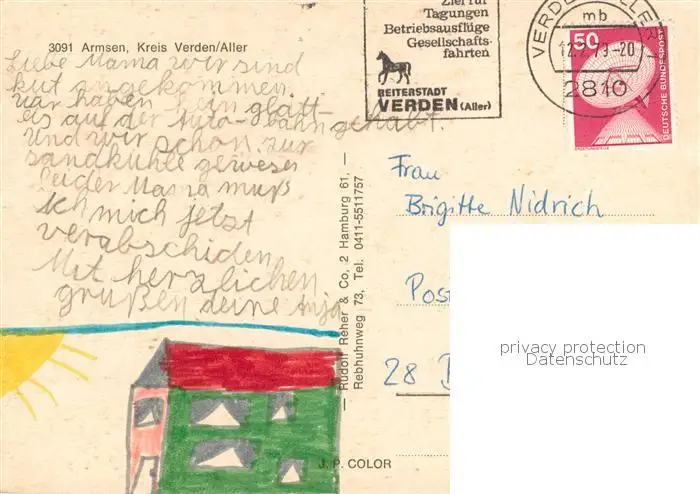 3091 Armsen, Kreis Verden/Aller
Liebe Mama wir sind
kut angekommen.
wir haben kein glatt-
eis auf der Auto-bahn gehabt.
Und wir schon zur
sandkuhle gewesen
Leider Mama muß
Ich mich jetzt
verabschiden
Mit herzlichen
grußen deine Anja
Ziel für
Tagungen
Betriebsausflüge
Gesellschafts-
fahrten
REITERSTADT
VERDEN (Aller)
VERDEN ALLER
mb
12.2.79-20
2810
50
DEUTSCHE BUNDESPOST
ERDFUNKSTELLE
Rudolf Reher & Co, 2 Hamburg 61,
Rebhuhnweg 73, Tel. 0411-5511757
Frau
Brigitte Nidrich
Post
28
privacy protection
Datenschutz
J. P. COLOR